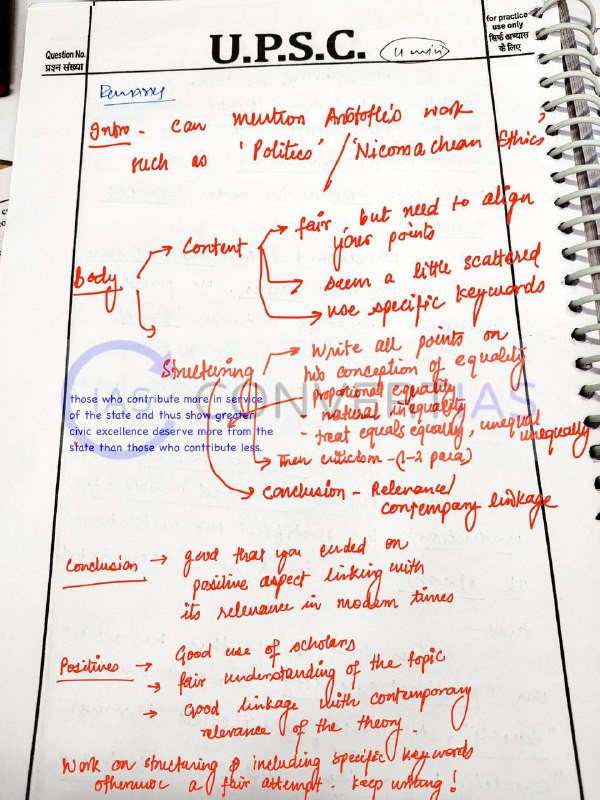 Question No.
प्रश्न संख्या
U.P.S.C.
(4 min)
for practice
use only
सिर्फ अभ्यास
के लिए
Remarks
Intro - Can mention Aristotle's work
such as 'Politics' / 'Nicomachean Ethics'
Body
Content
fair, but need to align
your points
seem a little scattered
use specific keywords
Structuring
Write all points on
his conception of equality
- proporional equality
- natural inequality
- treat equals equally, unequal
unequally
Then criticism - (1-2 para)
Conclusion - Relevance/
contempary linkage
IAS
CONVERT IAS
those who contribute more in service
of the state and thus show greater
civic excellence deserve more from the
state than those who contribute less.
Conclusion → good that you ended on
positive aspect linking with
its relevance in modern times
Positives → Good use of scholars
→ fair understanding of the topic
→ Good linkage with contemporary
relevance of the theory.
Work on structuring & including specific keywords
otherwise a fair attempt. Keep writing!